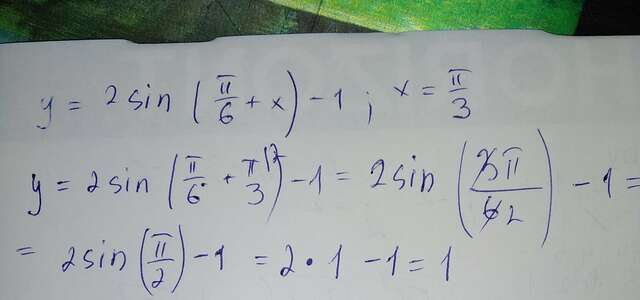 y = 2sin(π/6 + x) - 1; x = π/3
y = 2sin(π/6 + π/3 \2) - 1 = 2sin(3π/6 2) - 1 =
= 2sin(π/2) - 1 = 2·1 - 1 = 1